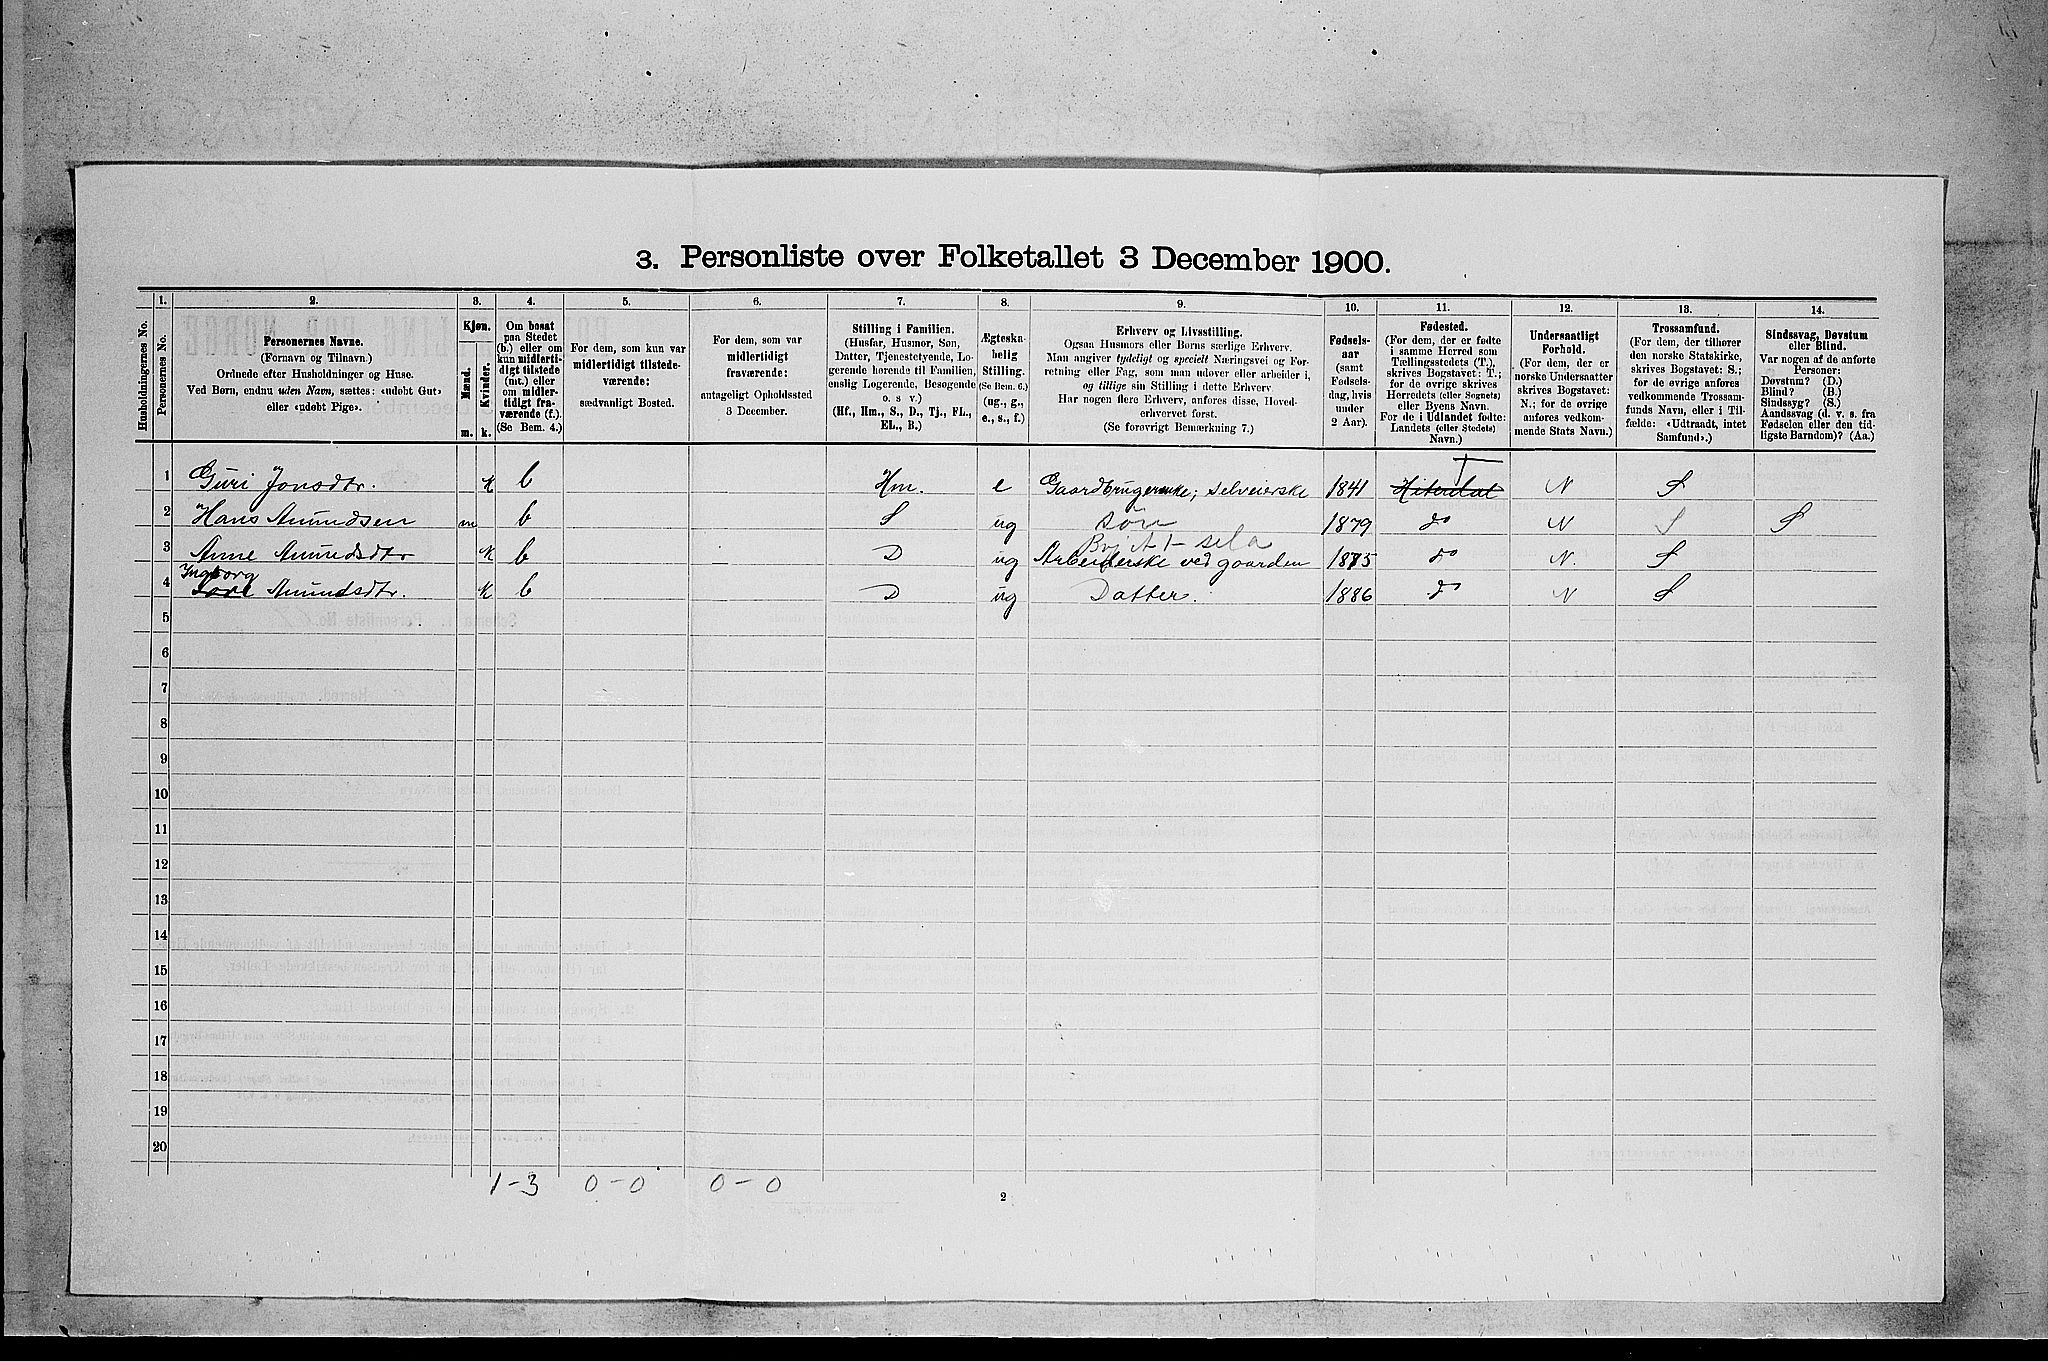 3. Personliste over Folketallet 3 December 1900.
1. 2. 3. 4. 5. 6. 7. 8. 9. 10. 11. 12. 13. 14.
Husholdningernes No.
Personernes No.
Personernes Navne.
(Fornavn og Tilnavn.)
Ordnede efter Husholdninger og Huse.
Ved Børn, endnu uden Navn, sættes: «udøbt Gut»
eller «udøbt Pige».
Kjøn.
Mænd.
Kvinder.
m. k.
Om bosat
paa Stedet
(b.) eller om
kun midlerti-
digt tilstede
(mt.) eller
om midler-
tidigt fra-
værende (f.).
(Se Bem. 4.)
For dem, som kun var
midlertidigt tilstede-
værende:
sædvanligt Bosted.
For dem, som var
midlertidigt
fraværende:
antageligt Opholdssted
3 December.
Stilling i Familien.
(Husfar, Husmor, Søn,
Datter, Tjenestetyende, Lo-
gerende hørende til Familien,
enslig Logerende, Besøgende
o. s v.)
(Hf., Hm., S., D., Tj., FL.,
EL., B.)
Ægteska-
belig
Stilling.
(Se Bem. 6.)
(ug., g.,
e., s., f.)
Erhverv og Livsstilling.
Ogsaa Husmors eller Børns særlige Erhverv.
Man angiver tydeligt og specielt Næringsvei og For-
retning eller Fag, som man udøver eller arbeider i,
og tillige sin Stilling i dette Erhverv.
Har nogen flere Erhverv, anføres disse, Hoved-
erhvervet først.
(Se forøvrigt Bemærkning 7.)
Fødsels-
aar
(samt
Fødsels-
dag, hvis
under
2 Aar).
Fødested.
(For dem, der er fødte
i samme Herred som
Tællingsstedets (T.),
skrives Bogstavet: T.;
for de øvrige skrives
Herredets (eller Sognets)
eller Byens Navn.
For de i Udlandet fødte:
Landets (eller Stedets)
Navn.)
Undersaatligt
Forhold.
(For dem, der er
norske Undersaatter
skrives Bogstavet:
N.; for de øvrige
anføres vedkom-
mende Stats Navn.)
Trossamfund.
(For dem, der tilhører
den norske Statskirke,
skrives Bogstavet: S.;
for de øvrige anføres
vedkommende Trossam-
funds Navn, eller i Til-
fælde: «Udtraadt, intet
Samfund».)
Sindssvag, Døvstum
eller Blind.
Var nogen af de anførte
Personer:
Døvstum? (D.)
Blind? (B.)
Sindssyg? (S.)
Aandssvag (d. v. s. fra
Fødselen eller den tid-
ligste Barndom)? (Aa.)
T
1 Guri Jonsdtr. K b Hm. e Gaardbrugerske; selveierske 1841 Hiterdal N S
2 Hans Amundsen m b S ug Søn 1879 do N S S
3 Anne Amundsdtr K b D ug Arbeiderske ved gaarden 1875 do N. S
Ingborg
4 Amundsdtr. K b D ug Datter. 1886 do N S
5
6
7
8
9
10
11
12
13
14
15
16
17
18
19
20
1-3 0-0 0-0
2